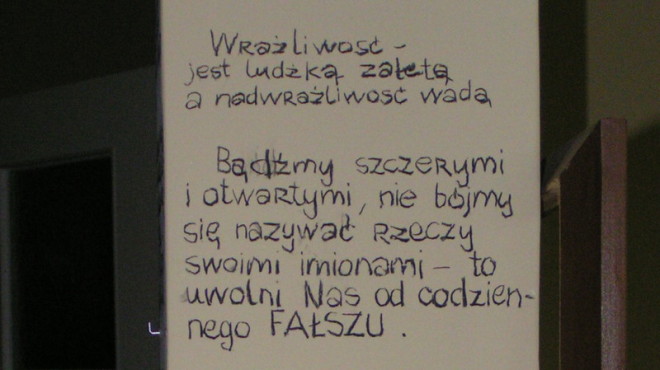 Wrażliwość -
jest ludzką zaletą
a nadwrażliwość wadą
Bądźmy szczerymi
i otwartymi, nie bójmy
się nazywać rzeczy
swoimi imionami - to
uwolni Nas od codzien-
nego FAŁSZU.